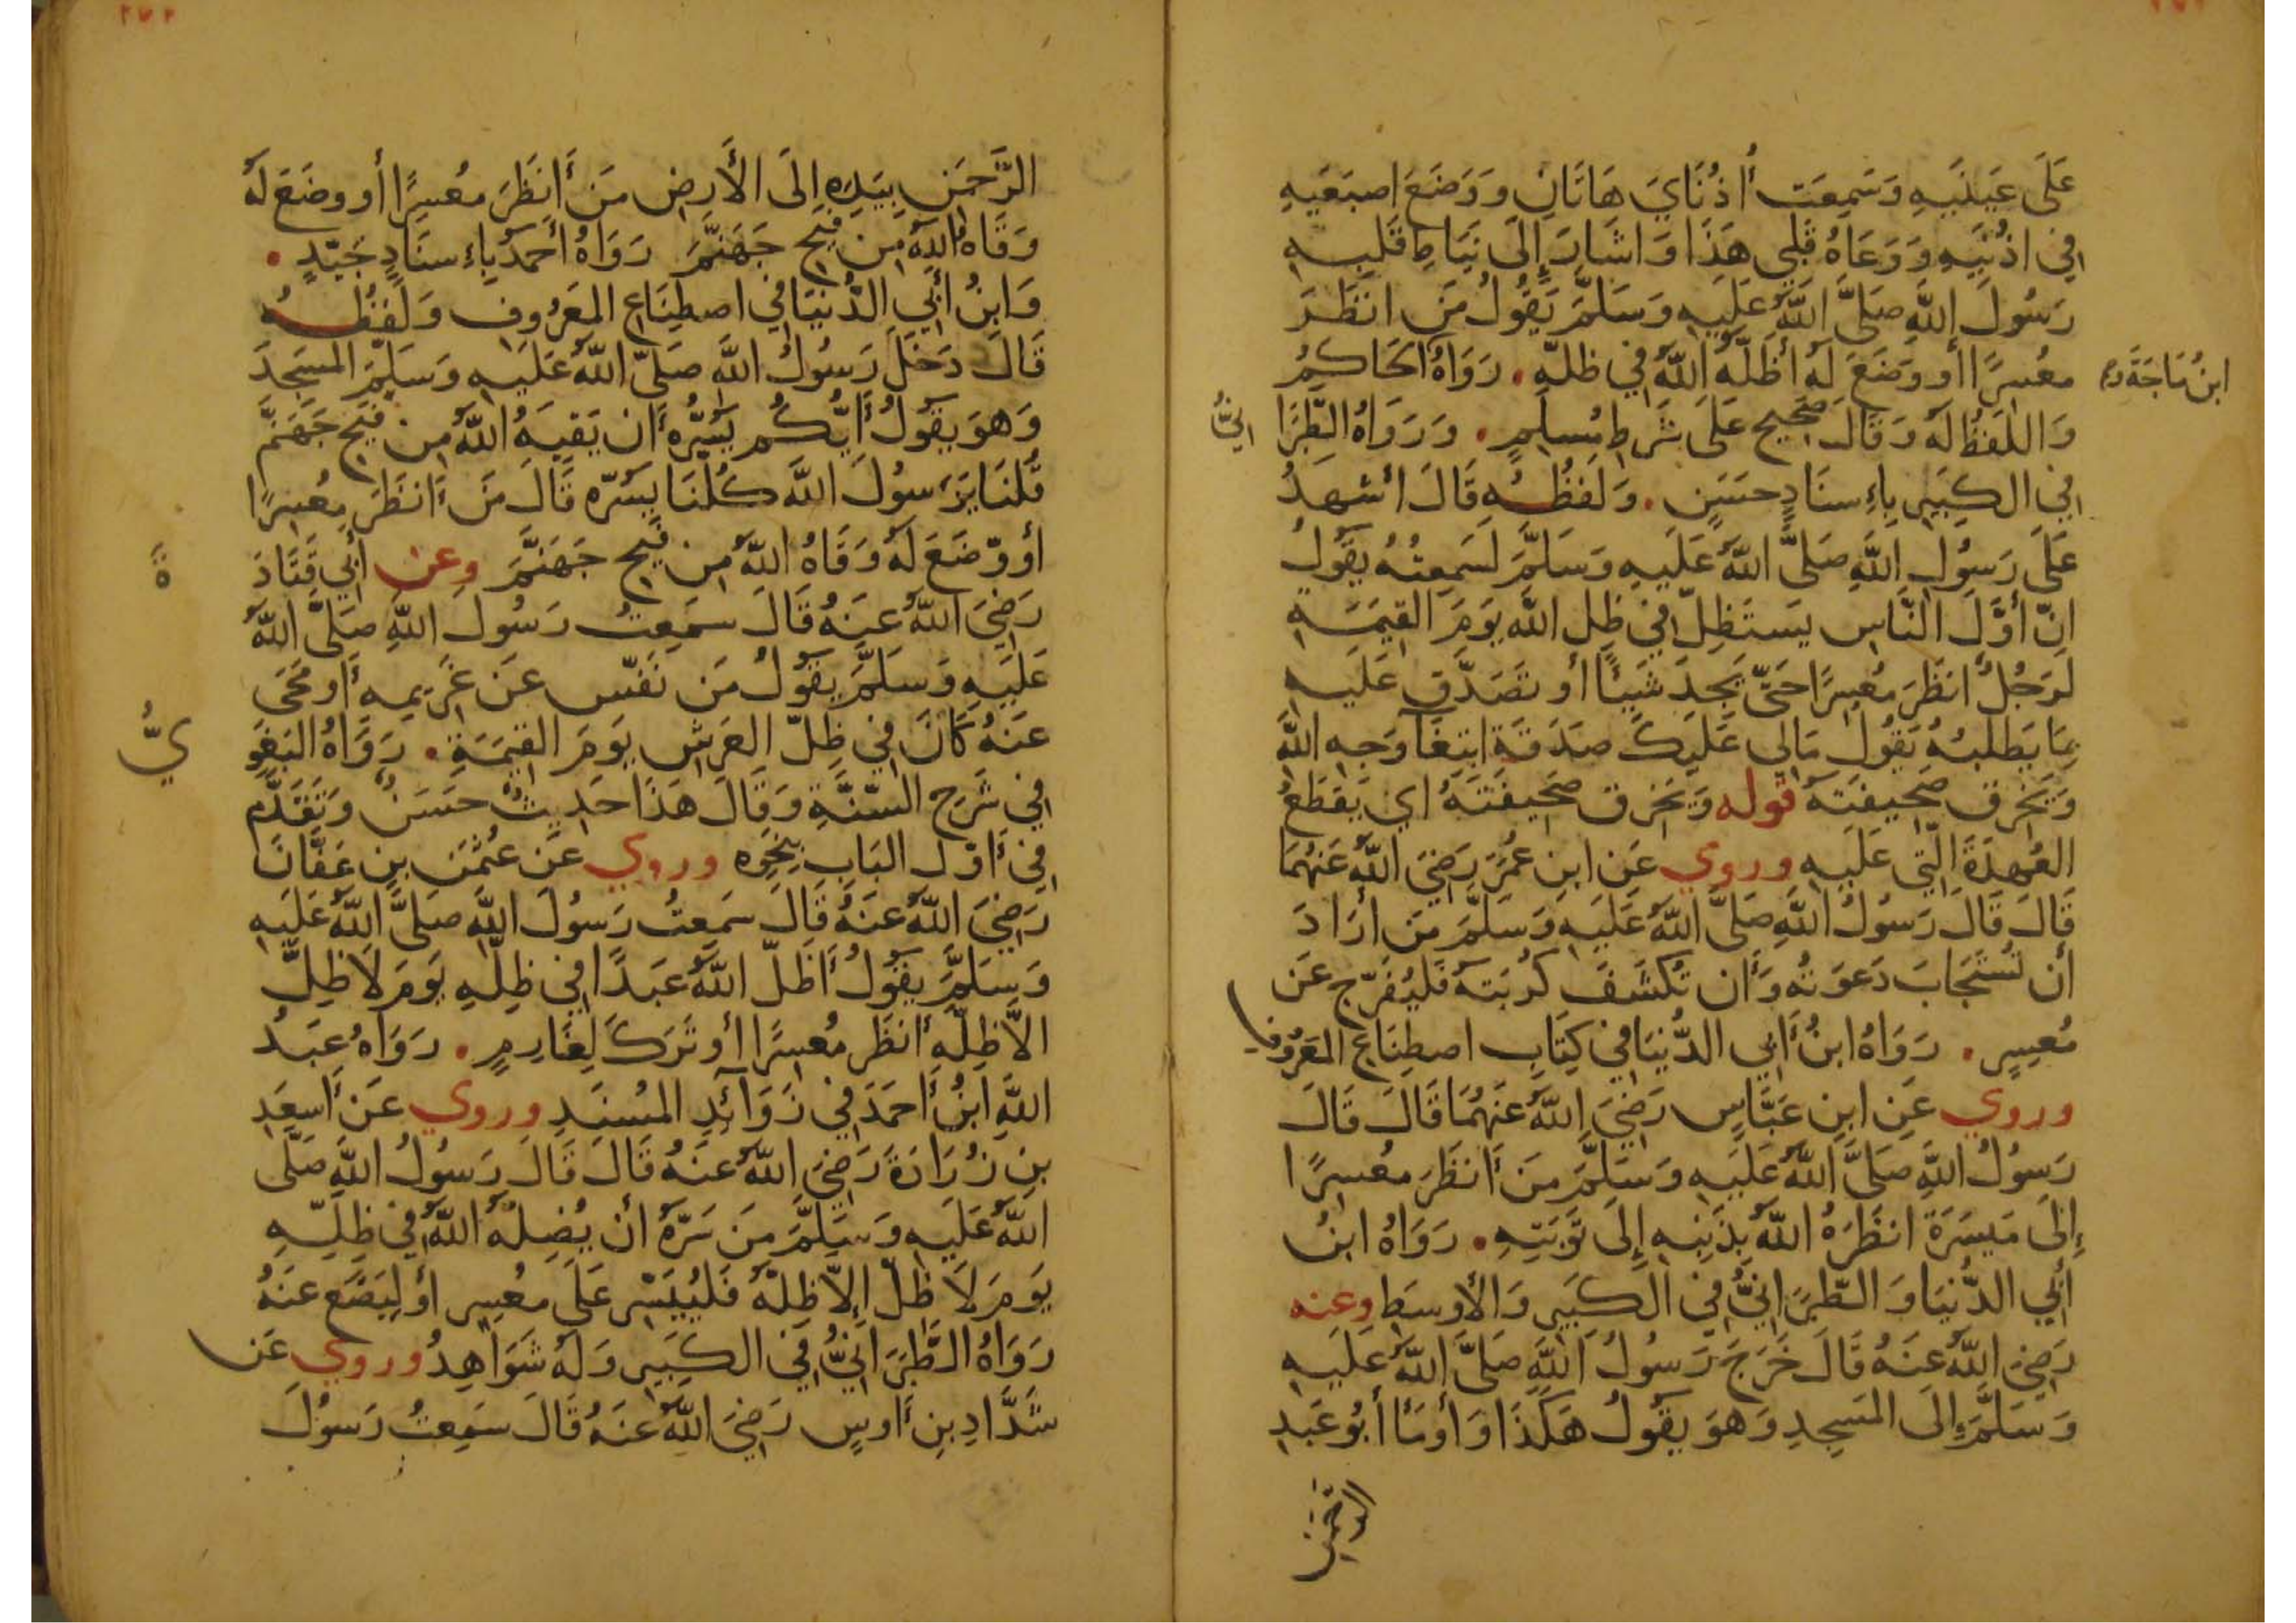 عَلَى عَينَيهِ وَسَمِعَت أُذُنَايَ هَاتَانِ وَوَضَعَ اصبَعَيهِ
فِي اذُنَيهِ وَوَعَاهُ قَلبِي هَذَا وَاشَارَ إِلَى نِيَاطِ قَلبِهِ
رَسُولَ اللَّهِ صَلَّى اللَّهُ عَلَيهِ وَسَلَّمَ يَقُولُ مَن انظَرَ
مُعسِرًا أَو وَضَعَ لَهُ أَظَلَّهُ اللَّهُ فِي ظِلِّهِ. رَوَاهُ الحَاكِمُ
ابنُ مَاجَة وَ
وَاللَّفظُ لَهُ وَقَالَ صَحِيح عَلَى شَرطِ مُسلِمٍ. وَرَوَاهُ الطَّبَرَانِيُّ
فِي الكَبِيرِ بِاءِسنَادٍ حَسَنٍ. وَلَفظُهُ قَالَ اشهَدُ
عَلَى رَسُولِ اللَّهِ صَلَّى اللَّهُ عَلَيهِ وَسَلَّمَ لَسَمِعتُهُ يَقُولُ
انّ أَوَّلَ النَّاسِ يَستَظِلّ فِي ظِلِ اللَّه يَومَ القِيمَةِ
لَرَجُلٌ انظَرَ مُعسِرًا حَتَّى يَجِدَ شَيئًا أَو تَصَدَّقَ عَلَيهِ
بِمَا يَطلبُهُ يَقُولُ مَالِي عَلَيكَ صَدَقَة ابتِغَآ وَجهِ اللَّهِ
وَيَخرِق صَحِيفَتَهُ قوله وَيَخرِق صَحِيفَتَهُ اي يَقطَعُ
العُهدَةَ الَّتِي عَلَيهِ وروي عَن ابنِ عُمَرَ رَضِيَ اللَّهُ عَنهُمَا
قَالَ قَالَ رَسُولُ اللَّهِ صَلَّى اللَّهُ عَلَيهِ وَسَلَّمَ مَن ارَادَ
أَن تُستَجَابَ دَعوَتُه وَأَن تُكشَفَ كُربَتهُ فَليُفَرّج عَن
مُعسِرٍ. رَوَاهُ ابنُ أَبِي الدُّنيَا فِي كِتَابِ اصطِنَاعِ المَعرُوفِ
وروي عَنِ ابنِ عَبَّاسٍ رَضِيَ اللَّهُ عَنهُمَا قَالَ قَالَ
رَسُولُ اللَّهِ صَلَّى اللَّهُ عَلَيهِ وَسَلَّمَ مَن أَنظَرَ مُعسِرًا
إِلَى مَيسَرَة انظَرَهُ اللَّهُ بِذَنبِهِ إِلَى تَوبَتِهِ. رَوَاهُ ابنُ
أَبِي الدُّنيَا وَالطَّبَرَانِيُّ فِي الكَبِيرِ وَالأَوسَطِ وعنه
رَضِيَ اللَّهُ عَنهُ قَالَ خَرَجَ رَسُولُ اللَّهِ صَلَّى اللَّهُ عَلَيهِ
وَسَلَّمَ إِلَى المَسجِدِ وَهوَ يَقُولُ هَكَذَا وَأَومَأَ أَبُو عَبدِ
الرَّحمَنِ
الرَّحمَنِ بِيَدِهِ إِلَى الأَرضِ مَن أَنظَرَ مُعسِرًا أَو وضَعَ لَهُ
وَقَاهُ اللَّهُ مِن فَيحِ جَهَنَّمَ رَوَاهُ أَحمَدُ بِاءِسنَادٍ جَيّدٍ.
وَابنُ أَبِي الدُّنيَا فِي اصطِنَاعِ المَعرُوفِ وَلَفظُهُ
قَالَ دَخَلَ رَسُولُ اللَّهِ صَلَّى اللَّهُ عَلَيهِ وَسَلَّمَ المَسجِدَ
وَهوَ يَقُولُ أَيُّكُم يَسُرُّه أَن يَقيَهُ اللَّهُ مِن فَيحِ جَهَنَّم
قُلنَا يَرَسُولَ اللَّه كُلّنَا يَسُرّه قَالَ مَن أَنظَرَ مُعسِرًا
أَو وَضَعَ لَهُ وَقَاهُ اللَّهُ مِن فَيحِ جَهَنَّمَ وعن أَبِي قَتَادَةَ
رَضِيَ اللَّهُ عَنهُ قَالَ سَمِعتُ رَسُولَ اللَّهِ صَلَّى اللَّهُ
عَلَيهِ وَسَلَّمَ يَقُولُ مَن نَفّسَ عَن غَرِيمِهِ أَو مَحَى
عَنهُ كَانَ فِي ظِلّ العَرشِ يَومَ القِيمَةِ. رَوَاهُ البَغَوِيُّ
فِي شَرحِ السُّنَّةِ وَقَالَ هَذَا حَدِيثٌ حَسَنٌ وَتَقَدَّم
فِي أَوّل البَابِ بِنَحوِه وروي عَن عُثمَنَ بنِ عَفَّانَ
رَضِيَ اللَّهُ عَنهُ قَالَ سَمِعتُ رَسُولَ اللَّهِ صَلَّى اللَّهُ عَلَيهِ
وَسَلَّمَ يَقُولُ أَظَلّ اللَّهُ عَبدًا فِي ظِلّهِ يَومَ لَا ظِلَّ
الاّ ظِلّه أَنظَر مُعسِرًا أَو تَرَكَ لِغَارِمٍ. رَوَاهُ عَبدُ
اللَّهِ ابنُ أَحمَدَ فِي زَوَآئدِ المُسنَدِ وروي عَن أَسعَدِ
بنِ زُرَارَةَ رَضِيَ اللَّهُ عَنهُ قَالَ قَالَ رَسُولُ اللَّهِ صَلَّى
اللَّهُ عَلَيهِ وَسَلَّمَ مَن سَرّهُ أن يُضِلهُ اللَّهُ فِي ظِلِّهِ
يَومَ لَا ظلّ إِلاّ ظِلّهُ فَليُيَسّر عَلَى مُعسِرٍ أَو لِيَضَع عَنهُ
رَوَاهُ الطَّبَرَانِيُّ فِي الكَبِيرِ وَلَهُ شَوَاهِدُ وروي عَن
شَدَّادِ بنِ أَوسٍ رَضِيَ اللَّهُ عَنهُ قَالَ سَمِعتُ رَسُولَ